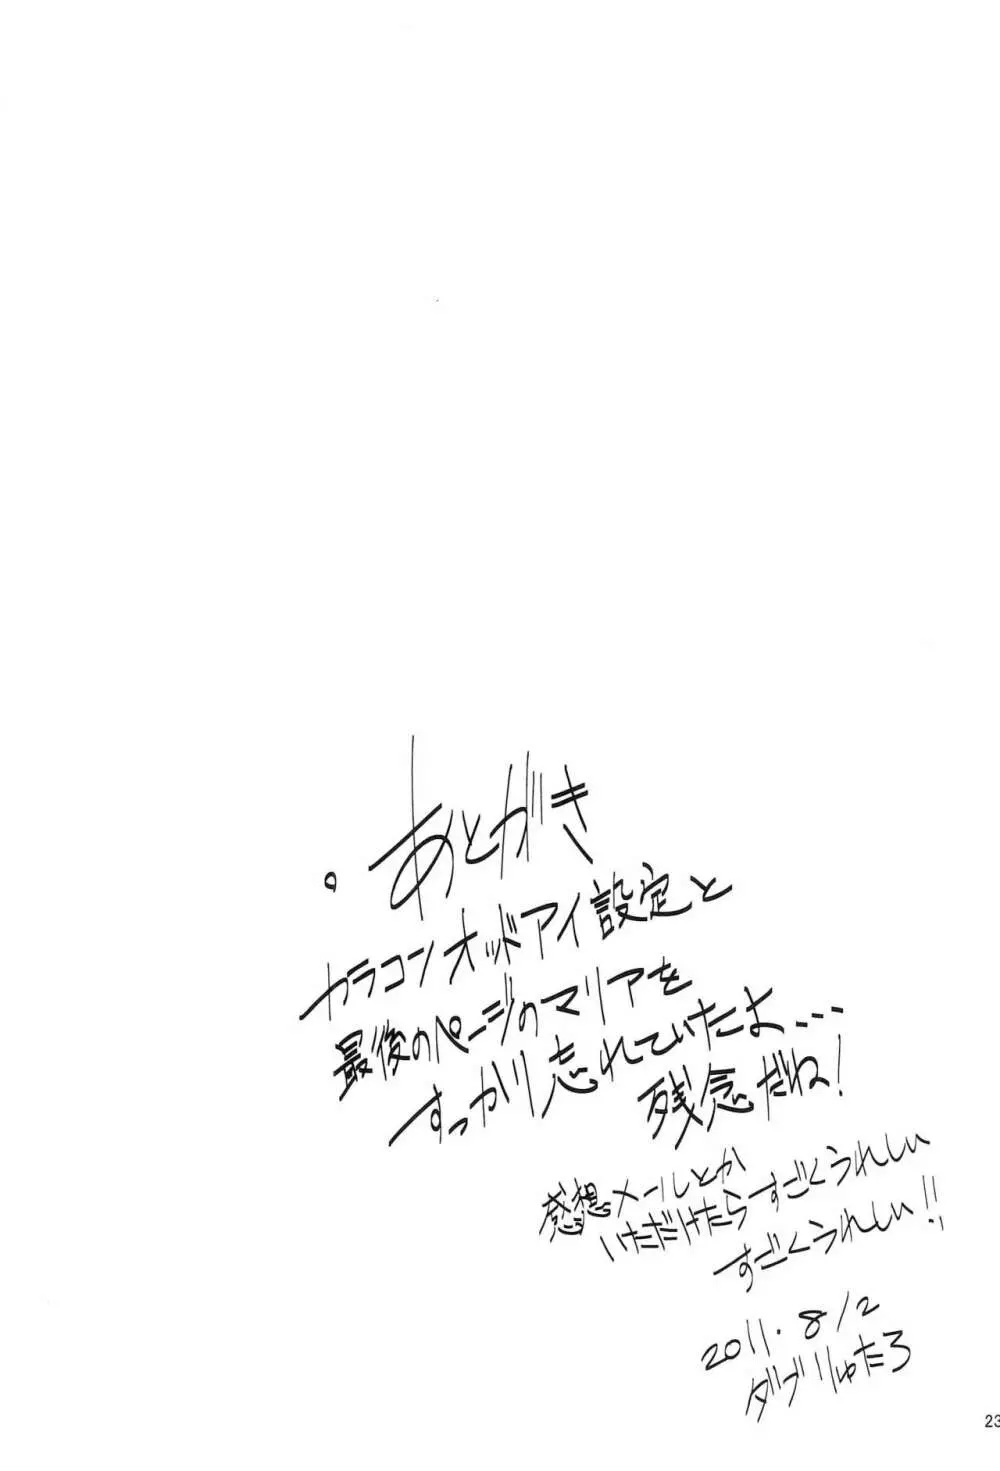 ・あとがき
カラコンオッドアイ設定と
最後のページのマリアを
すっかり忘れていたよ...
残念だね!
感想メールとか
いただけたらすごくうれしい
すごくうれしい!!
2011.8/2
ダブりゅたろ
23